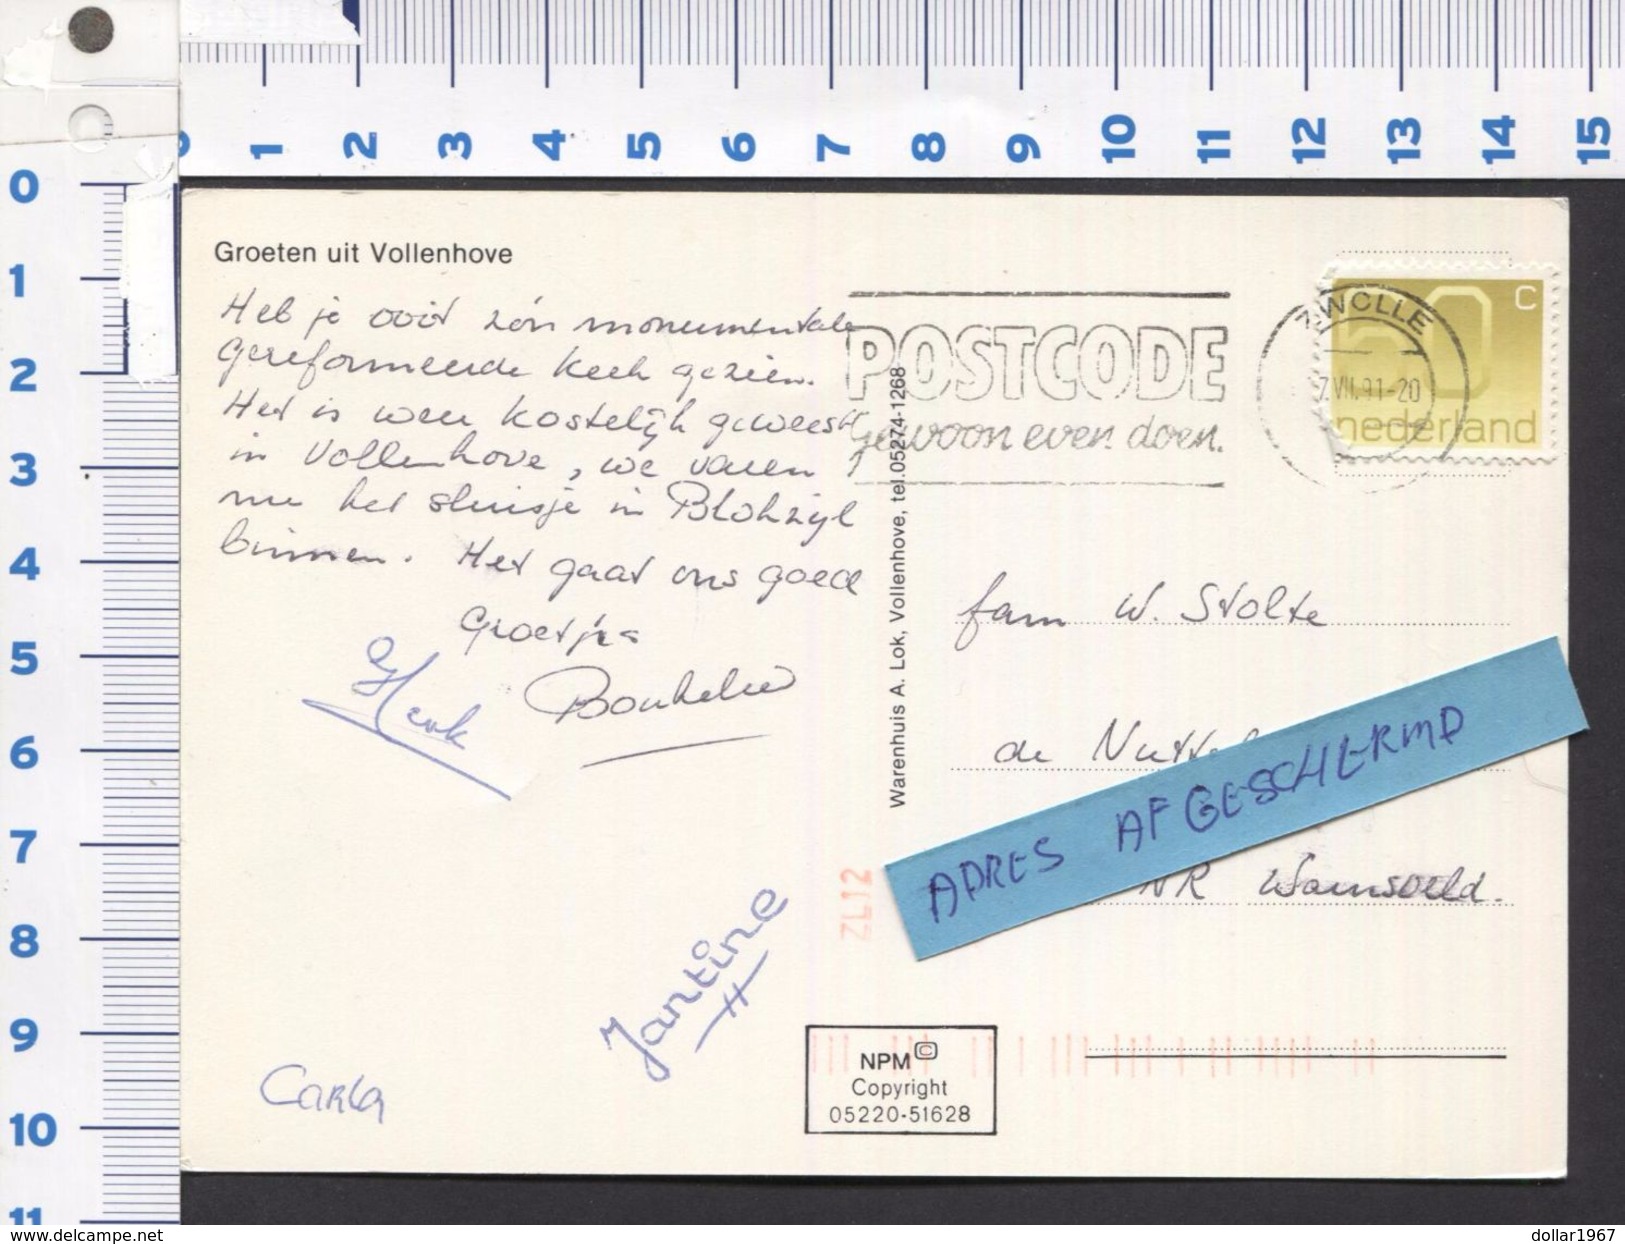 1 2 3 4 5 6 7 8 9 10 11 12 13 14 15
0
1
2
3
4
5
6
7
8
9
10
11
Groeten uit Vollenhove
Heb je ooit zo'n monumentale
gereformeerde kerk gezien.
Het is weer kostelijk geweest
in Vollenhove, we varen
nu het sluisje in Blokzijl
binnen. Het gaat ons goed
Groetjes
Henk
Jantine
Carla
POSTCODE
gewoon even doen.
ZWOLLE
7.VII.91-20
C
60
nederland
Warenhuis A. Lok, Vollenhove, tel.05274-1268
fam W. Stolte
de
ADRES AFGESCHERMD
NR Warnsveld.
ZL12
NPM C
Copyright
05220-51628
dollar1967